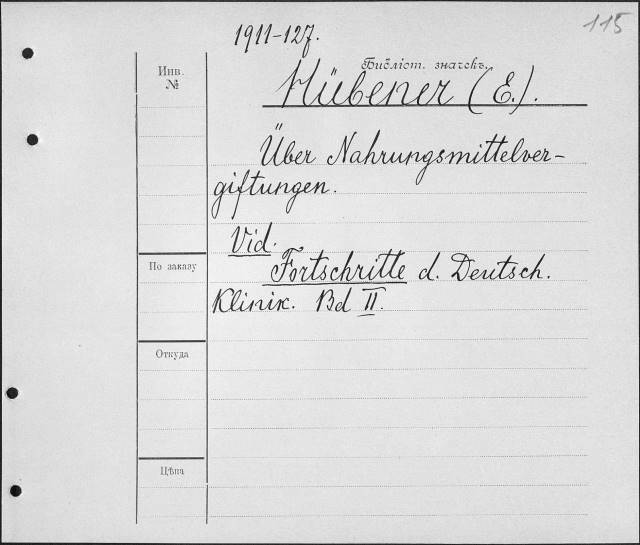 115
1911-127.
Инв.
№
Библіот. значекъ.
Hübener (E.).
Über Nahrungsmittelver-
giftungen.
Vid.
По заказу
Fortschritte d. Deutsch.
Klinik. Bd II.
Откуда
Цѣна